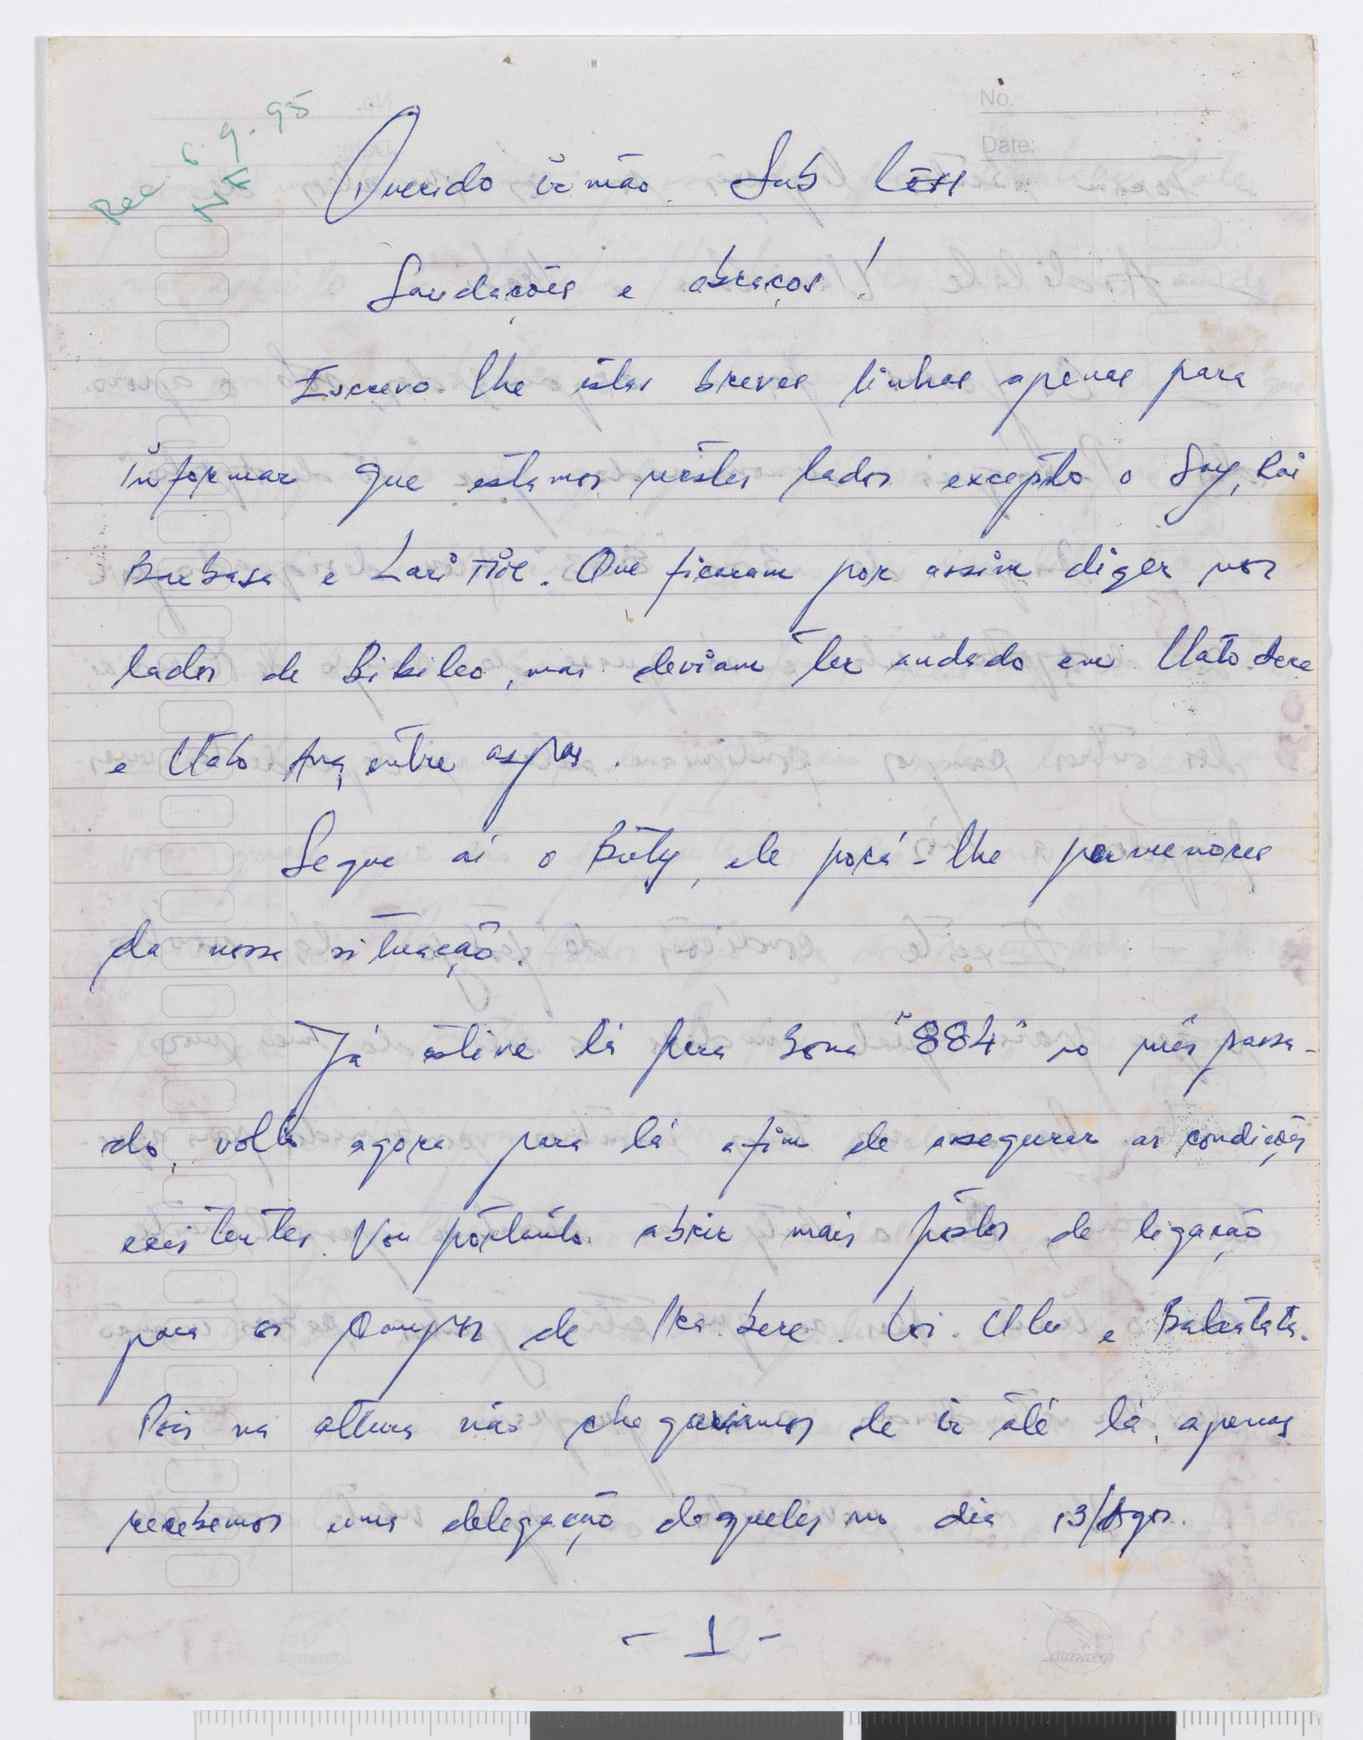 Rec 6.9.95
NK
No.
Date:
Querido irmão Sub
Saudações e abraços!
Escrevo-lhe estas breves linhas apenas para
informar que estamos nestes lados excepto o Say, Lai
e Lari Tior. Que ficaram por assim dizer nos
lados de Bibileo, mas deviam ter andado em Uato-Bere
e Uato Ana, entre aspas.
Segue aí o Bity, ele porá-lhe pormenores
da nossa situação.
Já estive lá pera zona "884" no mês passa-
do, volto agora para lá afim de assegurar as condições
existentes. Vou portanto abrir mais postos de ligação
para os Campos de Bere. Loi. Ulu e
Pois na altura não chegariamos de ir até lá, apenas
recebemos uma delegação daqueles no dia 13/Agos.
- 1 -